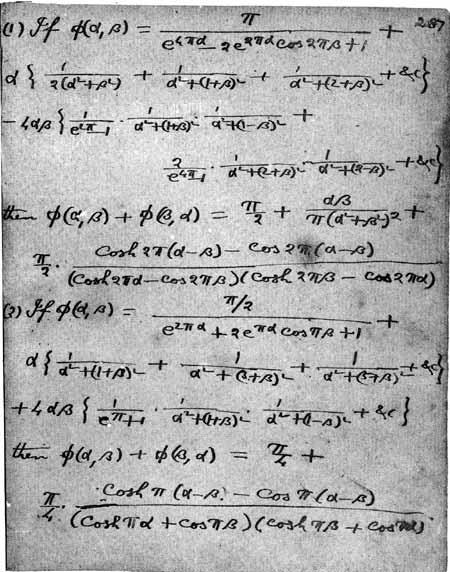 287
(1) If φ(α, β) = π / (e^{4πα} − 2e^{2πα} cos 2πβ + 1) +
α { 1/(2(α²+β²)) + 1/(α²+(1+β)²) + 1/(α²+(2+β)²) + &c }
− 4αβ { 1/(e^{2π}−1) · 1/(α²+(1+β)²) · 1/(α²+(1−β)²) +
2/(e^{4π}−1) · 1/(α²+(2+β)²) · 1/(α²+(2−β)²) + &c }
then φ(α, β) + φ(β, α) = π/2 + αβ/(π(α²+β²)²) +
π/2 · (cosh 2π(α−β) − cos 2π(α−β)) / ((cosh 2πα − cos 2πβ)(cosh 2πβ − cos 2πα))
(2) If φ(α, β) = (π/2) / (e^{2πα} + 2e^{πα} cos πβ + 1) +
α { 1/(α²+(1+β)²) + 1/(α²+(3+β)²) + 1/(α²+(5+β)²) + &c }
+ 4αβ { 1/(e^{π}+1) · 1/(α²+(1+β)²) · 1/(α²+(1−β)²) + &c }
then φ(α, β) + φ(β, α) = π/4 +
π/4 · (cosh π(α−β) − cos π(α−β)) / ((cosh πα + cos πβ)(cosh πβ + cos πα))